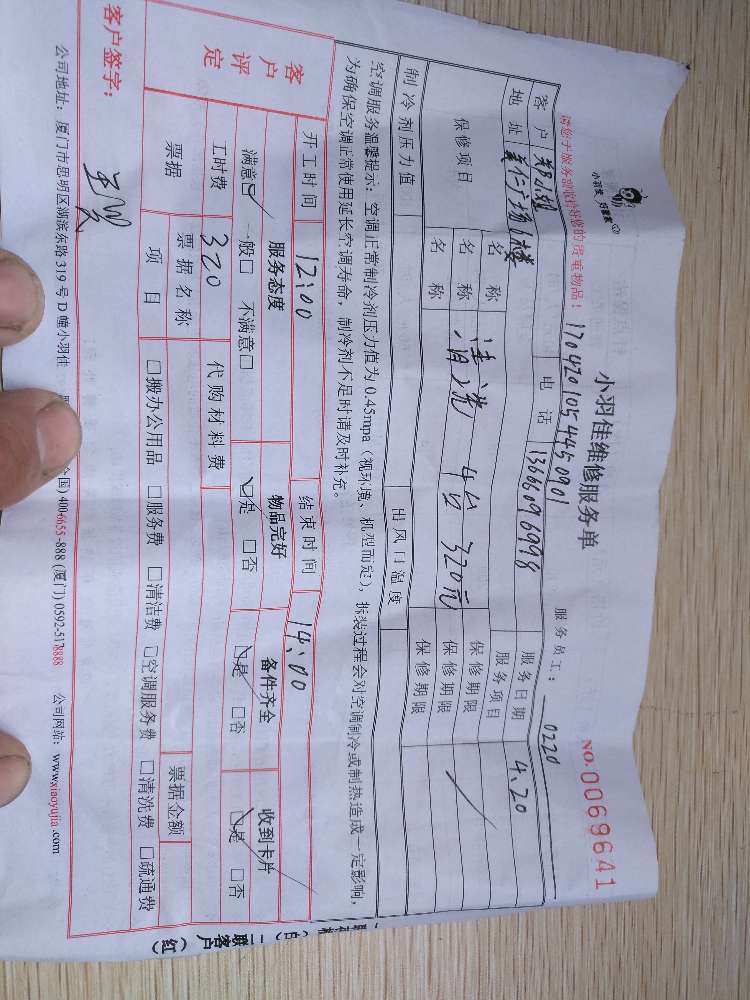 小羽佳 好管家
小羽佳维修服务单
NO.0069641
请您于服务前收拾好您的贵重物品!
170420105445 0901
服务员工: 0220
客户 郑小姐 电话 13666096998 服务日期 4.20
地址 美仁广场1楼 服务项目
保修项目 名称 保修期限
名称 清洗 4台 320元 保修期限
名称 保修期限
制冷剂压力值 出风口温度
空调服务温馨提示:空调正常制冷剂压力值为0.45mpa(视环境、机型而定),拆装过程会对空调制冷或制热造成一定影响,
为确保空调正常使用延长空调寿命,制冷剂不足时请及时补充。
开工时间 12:00 结束时间 14:00
客户评定 服务态度 物品完好 备件齐全 收到卡片
满意☑ 一般□ 不满意□ ☑是 □否 ☑是 □否 ☑是 □否
工时费 320 代购材料费
票据 票据名称 票据金额
项目 □搬办公用品 □服务费 □清洁费 □空调服务费 □清洗费 □疏通费
客户签字:
公司地址:厦门市思明区湖滨东路319号D幢小羽佳
国)4006655-888(厦门)0592-5178888 公司网站:www.xiaoyujia.com
二联客户(红)